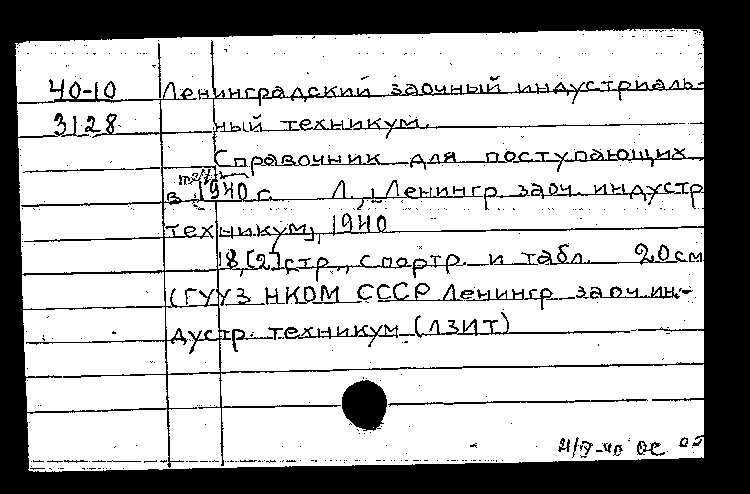 40-10 Ленинградский заочный индустриаль-
3128 ный техникум.
Справочник для поступающих
в 1940 г. Л., [Ленингр. заоч. индустр
техникум], 1940
18,[2] стр., с портр. и табл. 20 см
(ГУУЗ НКОМ СССР Ленингр заоч. ин-
дустр. техникум (ЛЗИТ)